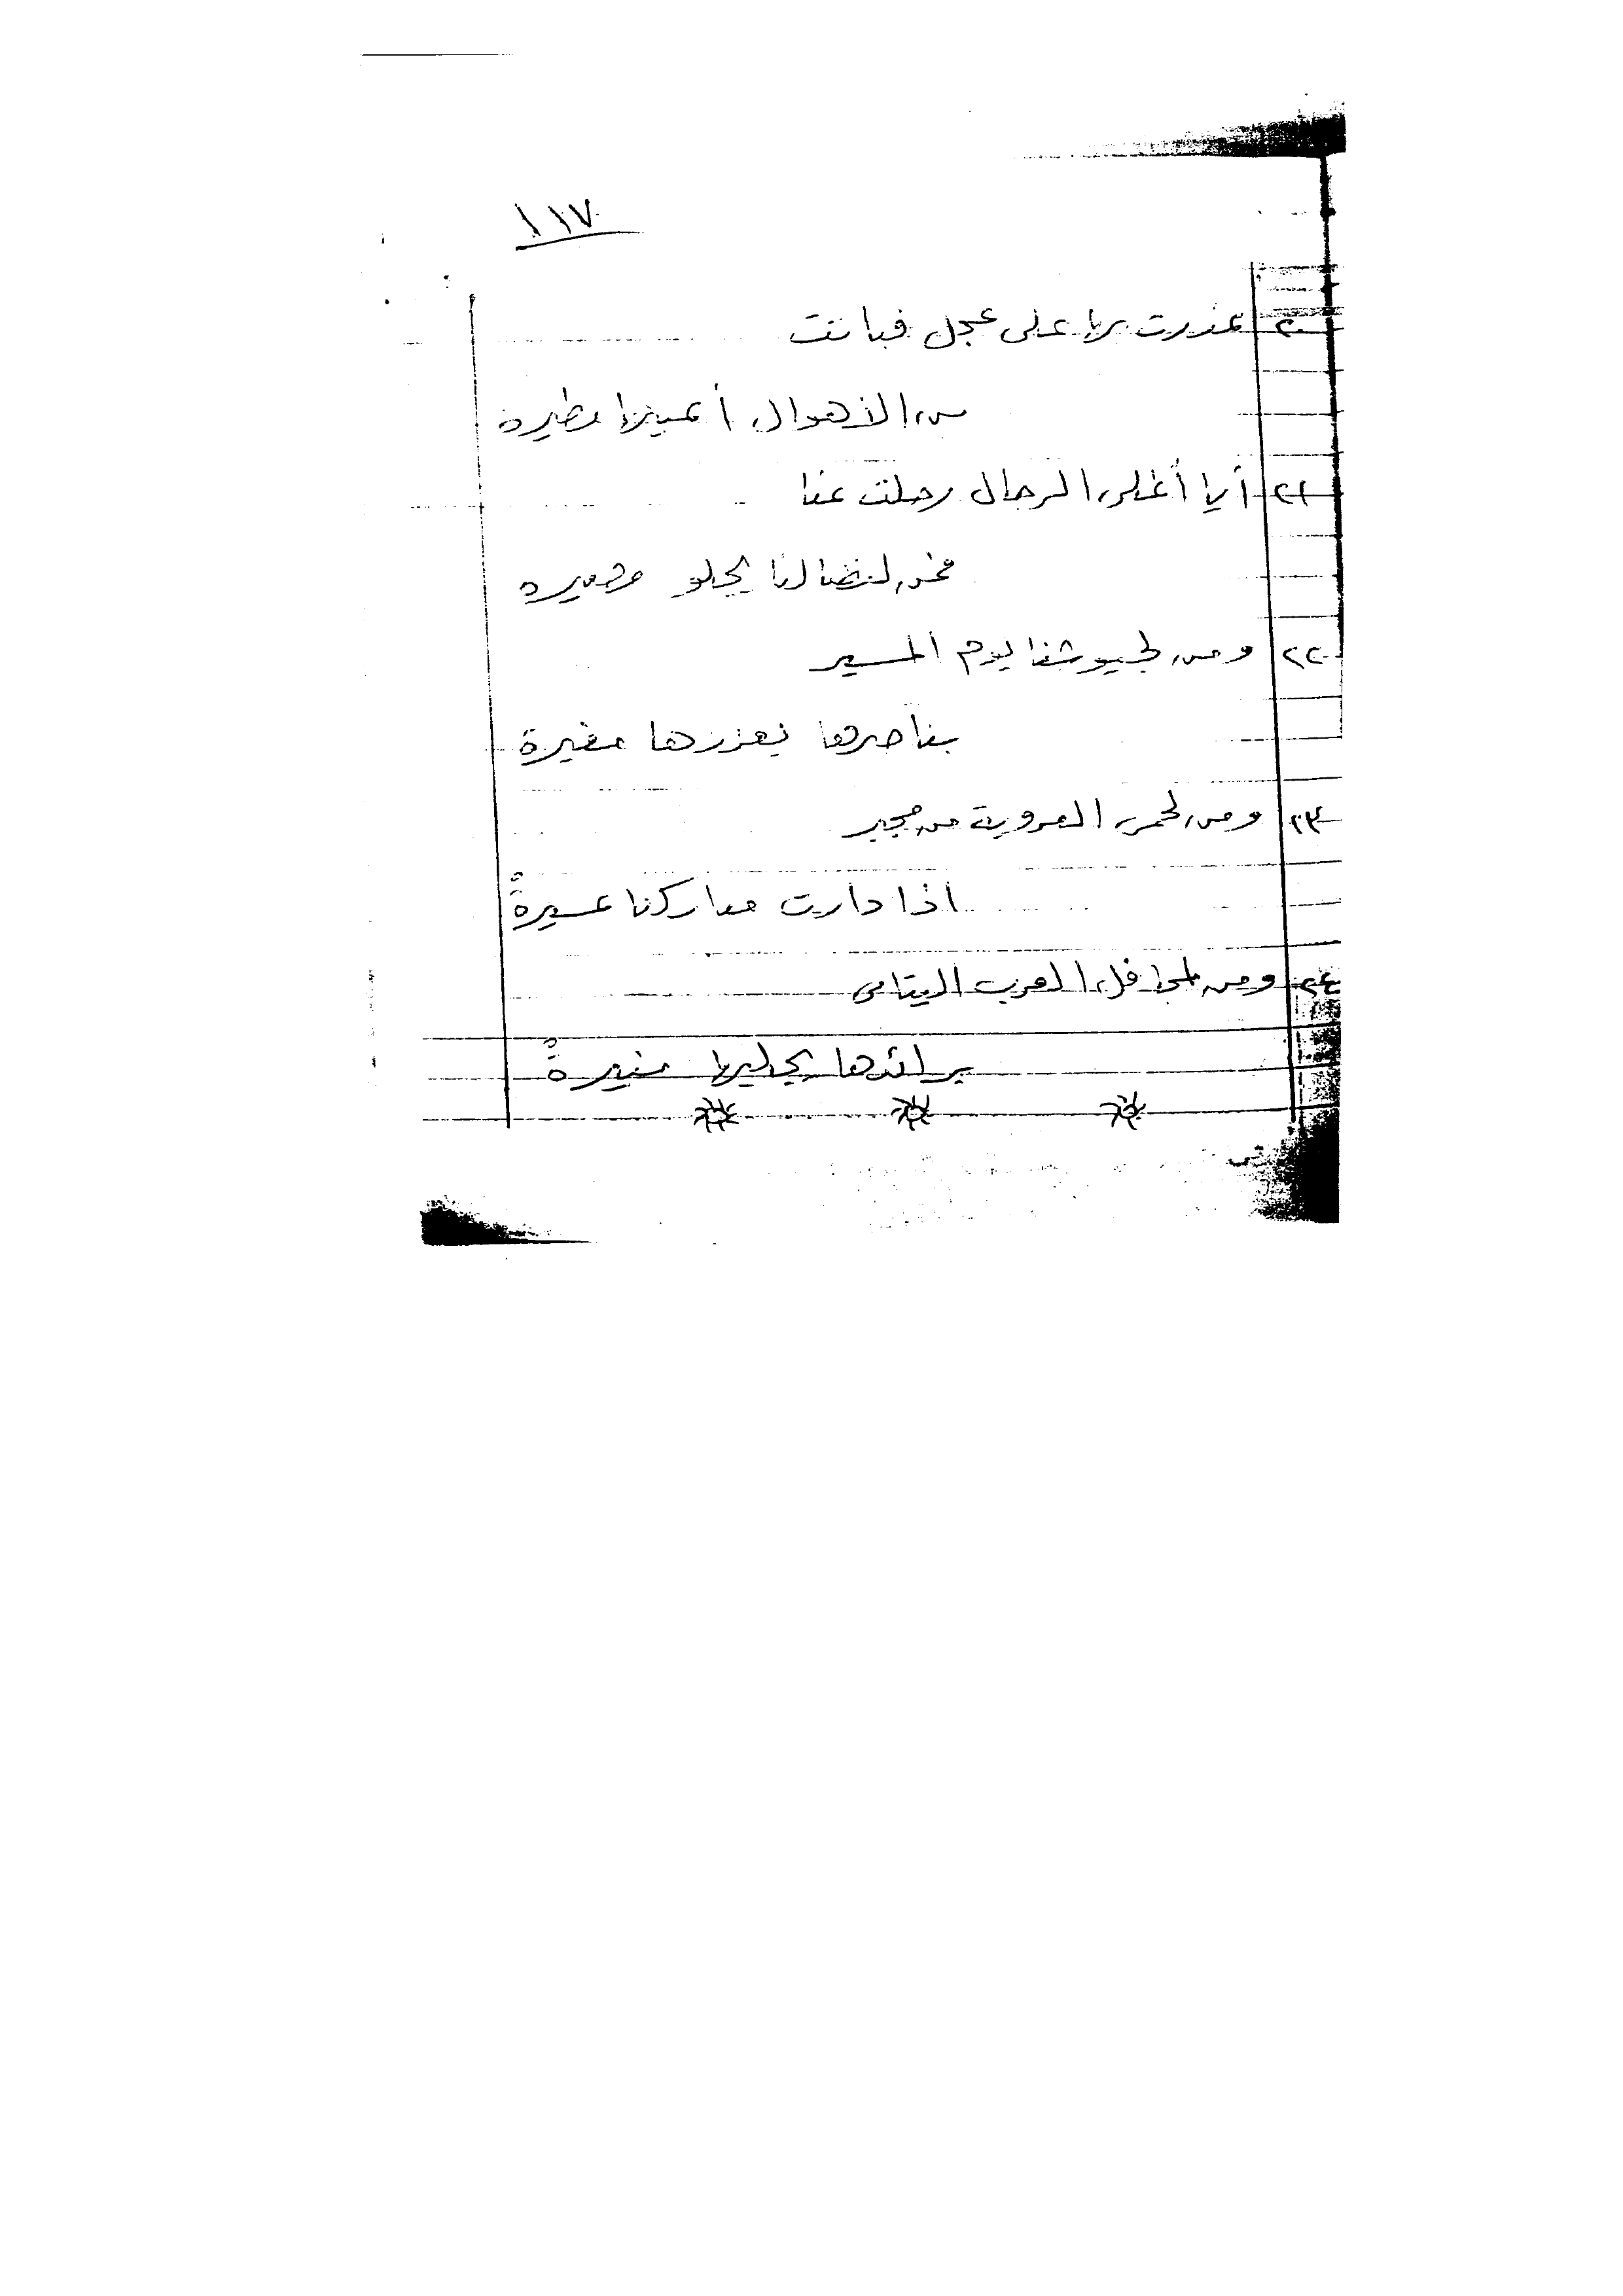 ١١٧
٢٠ غدرت بها على عجل فباتت
من الأهوال أعينها مطيره
٢١ أيا أغلى الرجال رحلت عنا
فمن لنضالنا يجلو مصيره
٢٢ ومن لجيوشنا يوم المسير
يناصرها يعززها مغيرة
٢٣ ومن لحمى العروبة من مجير
اذا دارت معاركنا عسيرةً
٢٤ ومن لمحافل العرب اليتامى
يرائدها يجليها منيرةً